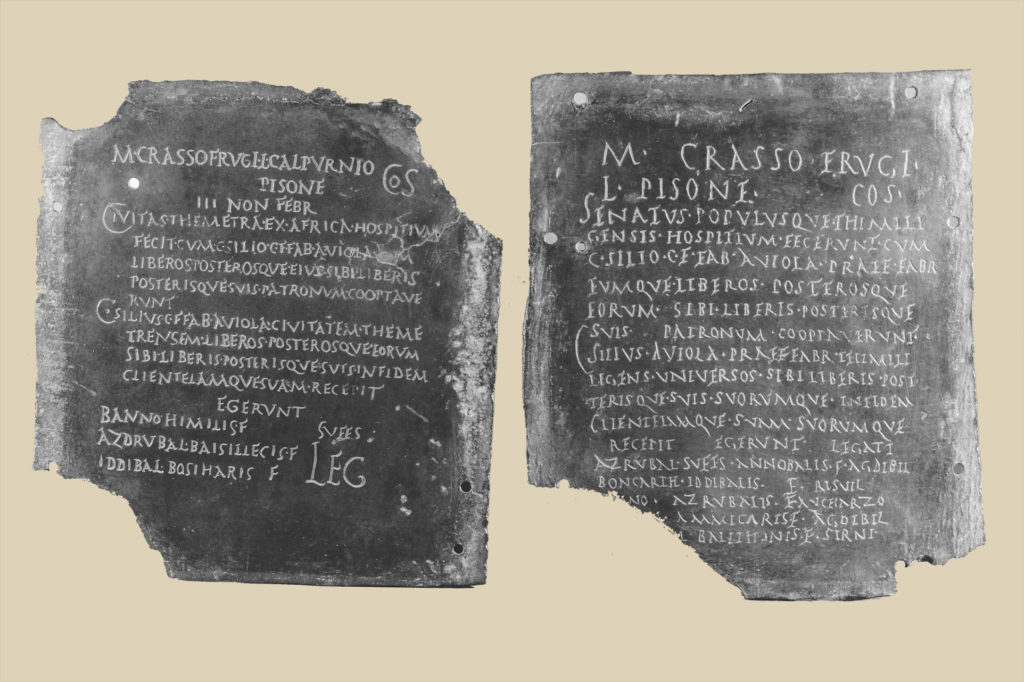 M·CRASSO FRUGI·L·CALPURNIO
PISONE COS
III NON FEBR
CIVITAS·THEMETRA·EX·AFRICA·HOSPITIUM
FECIT·CUM·C·SILIO·C·F·FAB·AVIOLA·EUM
LIBEROS·POSTEROSQUE·EIUS·SIBI·LIBERIS
POSTERISQUE·SUIS·PATRONUM·COOPTAVE
RUNT
C·SILIUS·C·F·FAB·AVIOLA·CIVITATEM·THEME
TRENSEM·LIBEROS·POSTEROSQUE·EORUM
SIBI·LIBERIS·POSTERISQUE·SUIS·IN FIDEM
CLIENTELAMQUE·SUAM·RECEPIT
EGERUNT
BANNO HIMILIS F SUFES·
AZDRUBAL·BAISILLECIS·F LEG
IDDIBAL BOSIHARIS F
M· CRASSO FRUGI·
L· PISONE· COS·
SENATUS·POPULUSQUE·THIMILI
GENSIS·HOSPITIUM·FECERUNT·CUM
C·SILIO·C·F·FAB·AVIOLA·PRAEF·FABR
EUMQUE·LIBEROS·POSTEROSQUE
EORUM·SIBI·LIBERIS·POSTERISQUE
SUIS· PATRONUM·COOPTAVERUNT·
C SILIUS·AVIOLA·PRAEF·FABR·THIMILI
LIGENS·UNIVERSOS·SIBI LIBERIS·POST
TERISQUE·SUIS·SUORUMQUE·IN FIDEM
CLIENTELAMQUE·SUAM SUORUMQUE
RECEPIT EGERUNT LEGATI
AZRUBAL·SUFES·ANNOBALIS·F·AGDIBIL
BONCARTH·IDDIBALIS·F·RISUIL
AZRUBALIS·F·AUCHARZO
AMMICARIS·F·AGDIBIL
BALITHONIS·F·SIRNI·